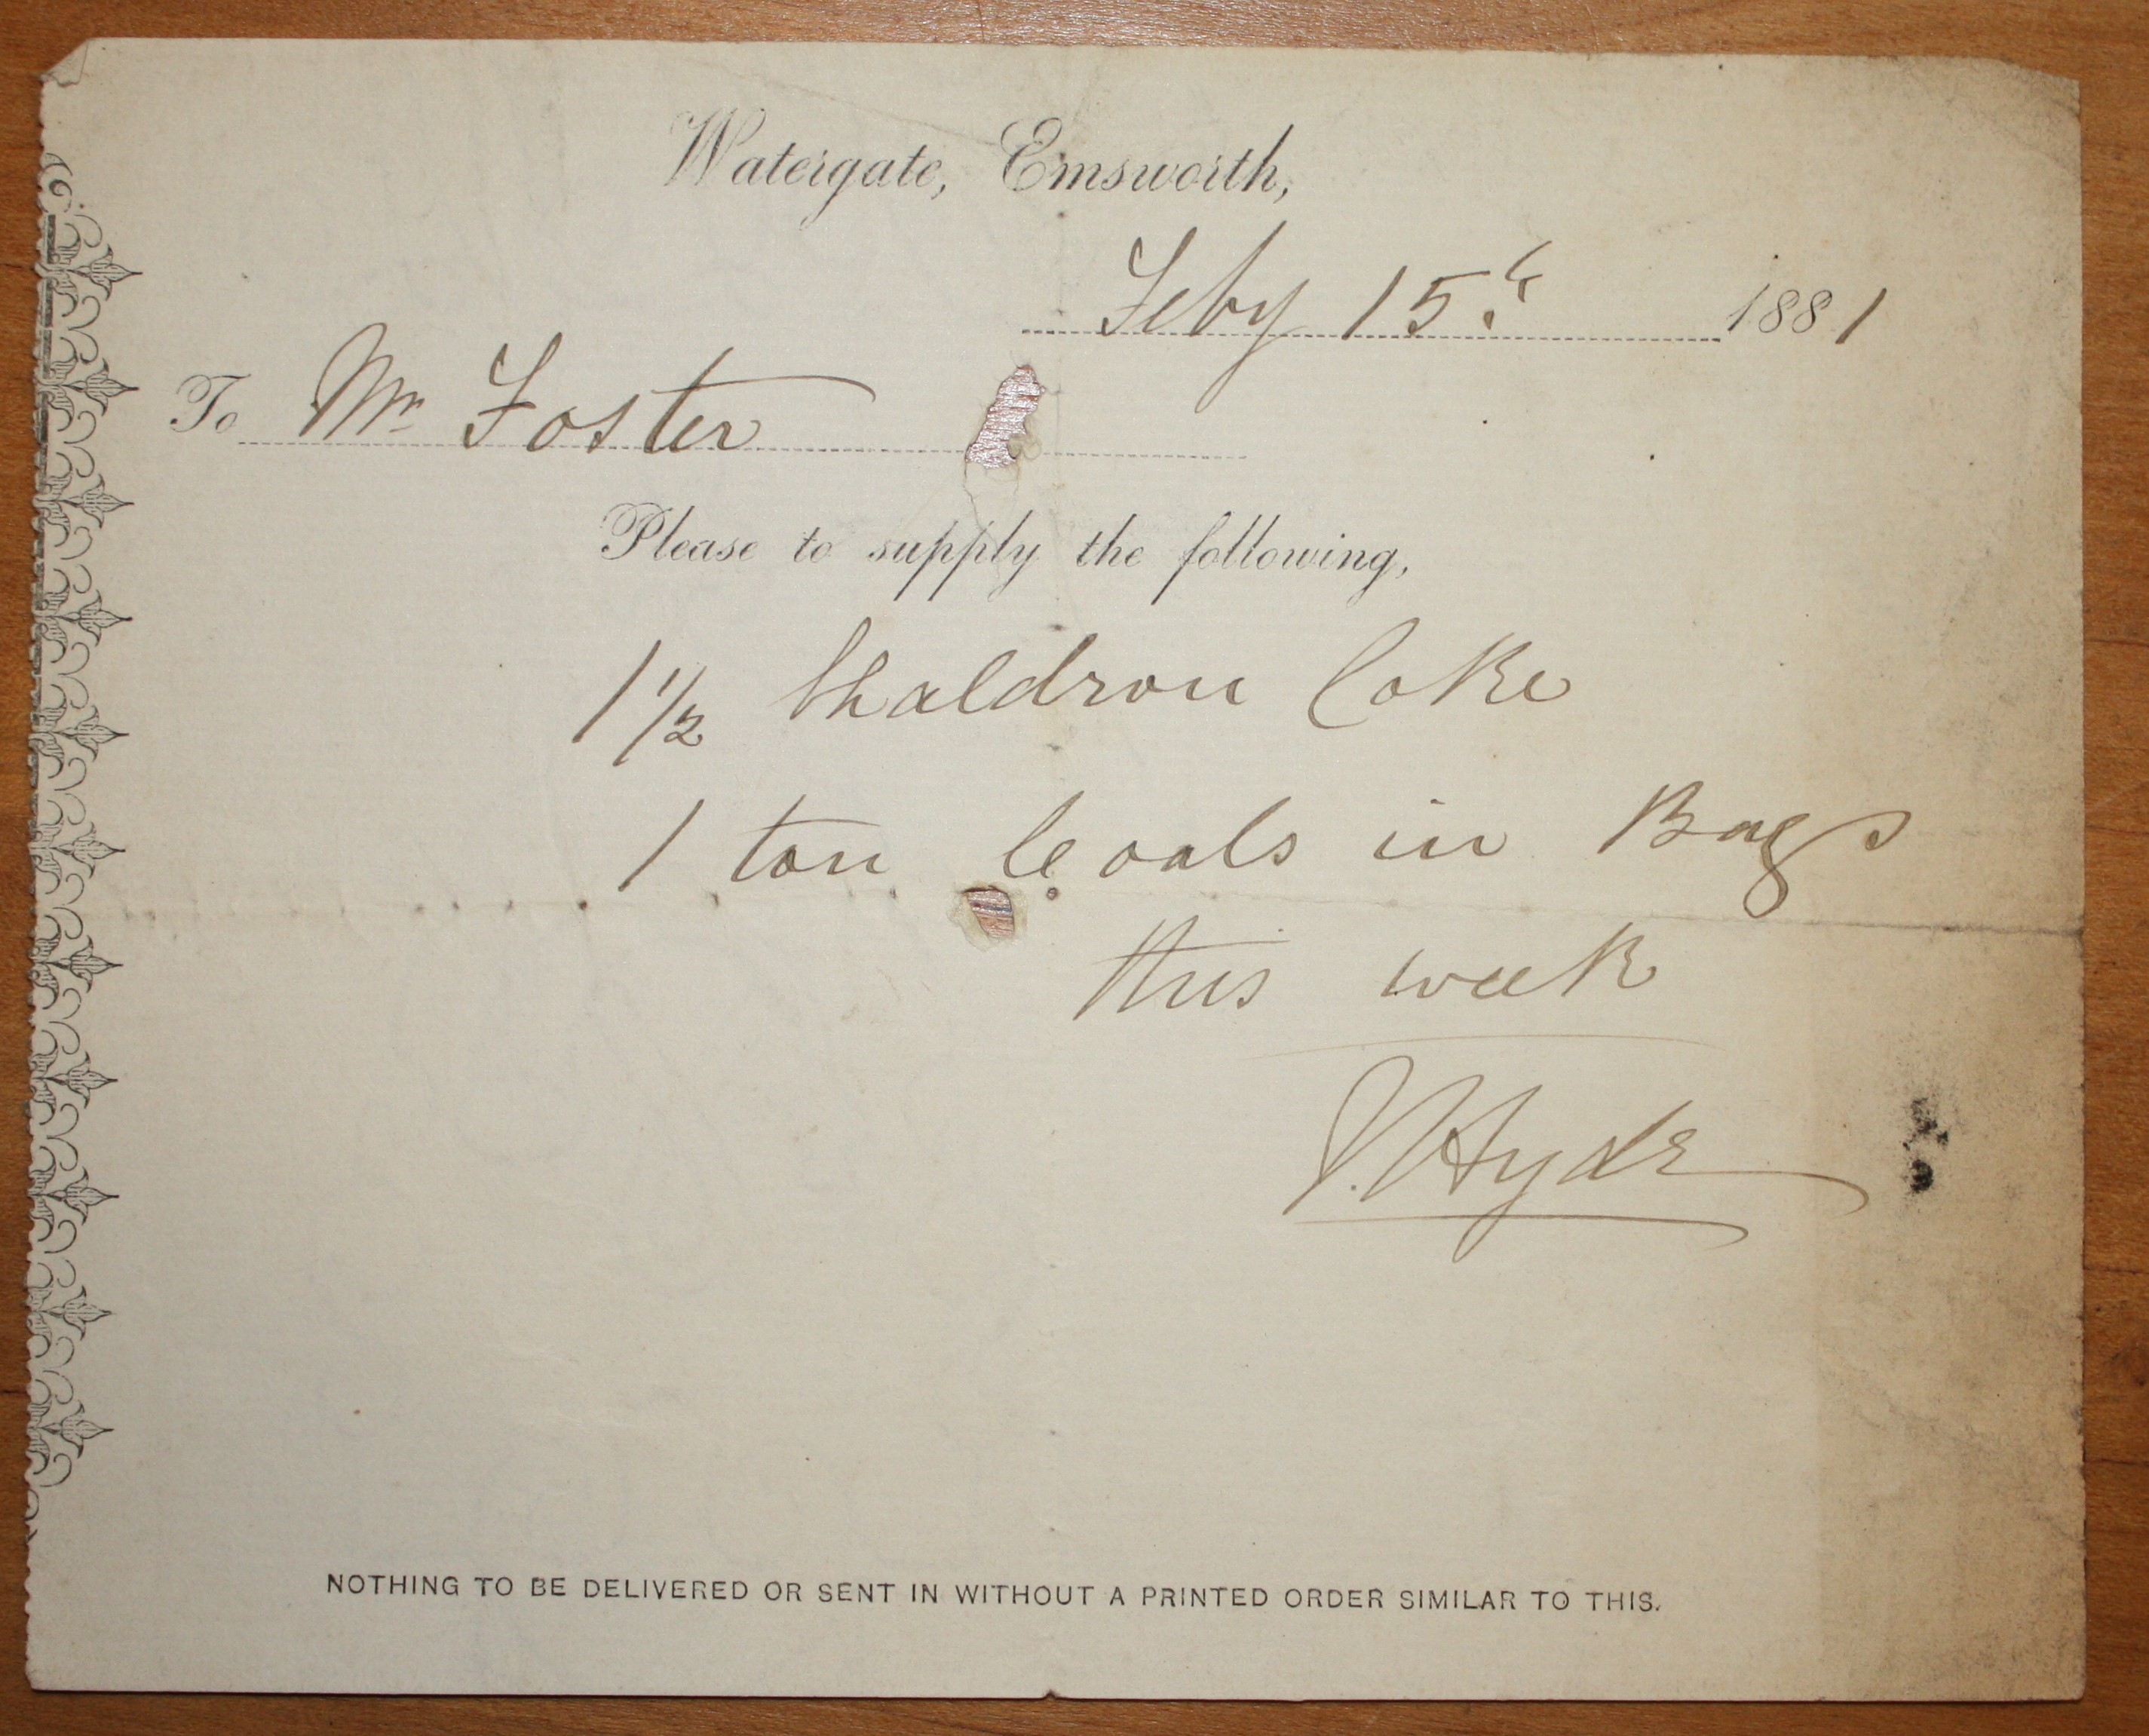 Watergate, Emsworth,
Feby 15th 1881
To Mr Foster
Please to supply the following,
1 1/2 Chaldron Coke
1 ton Coals in Bags
this week
J. Hyde
NOTHING TO BE DELIVERED OR SENT IN WITHOUT A PRINTED ORDER SIMILAR TO THIS.